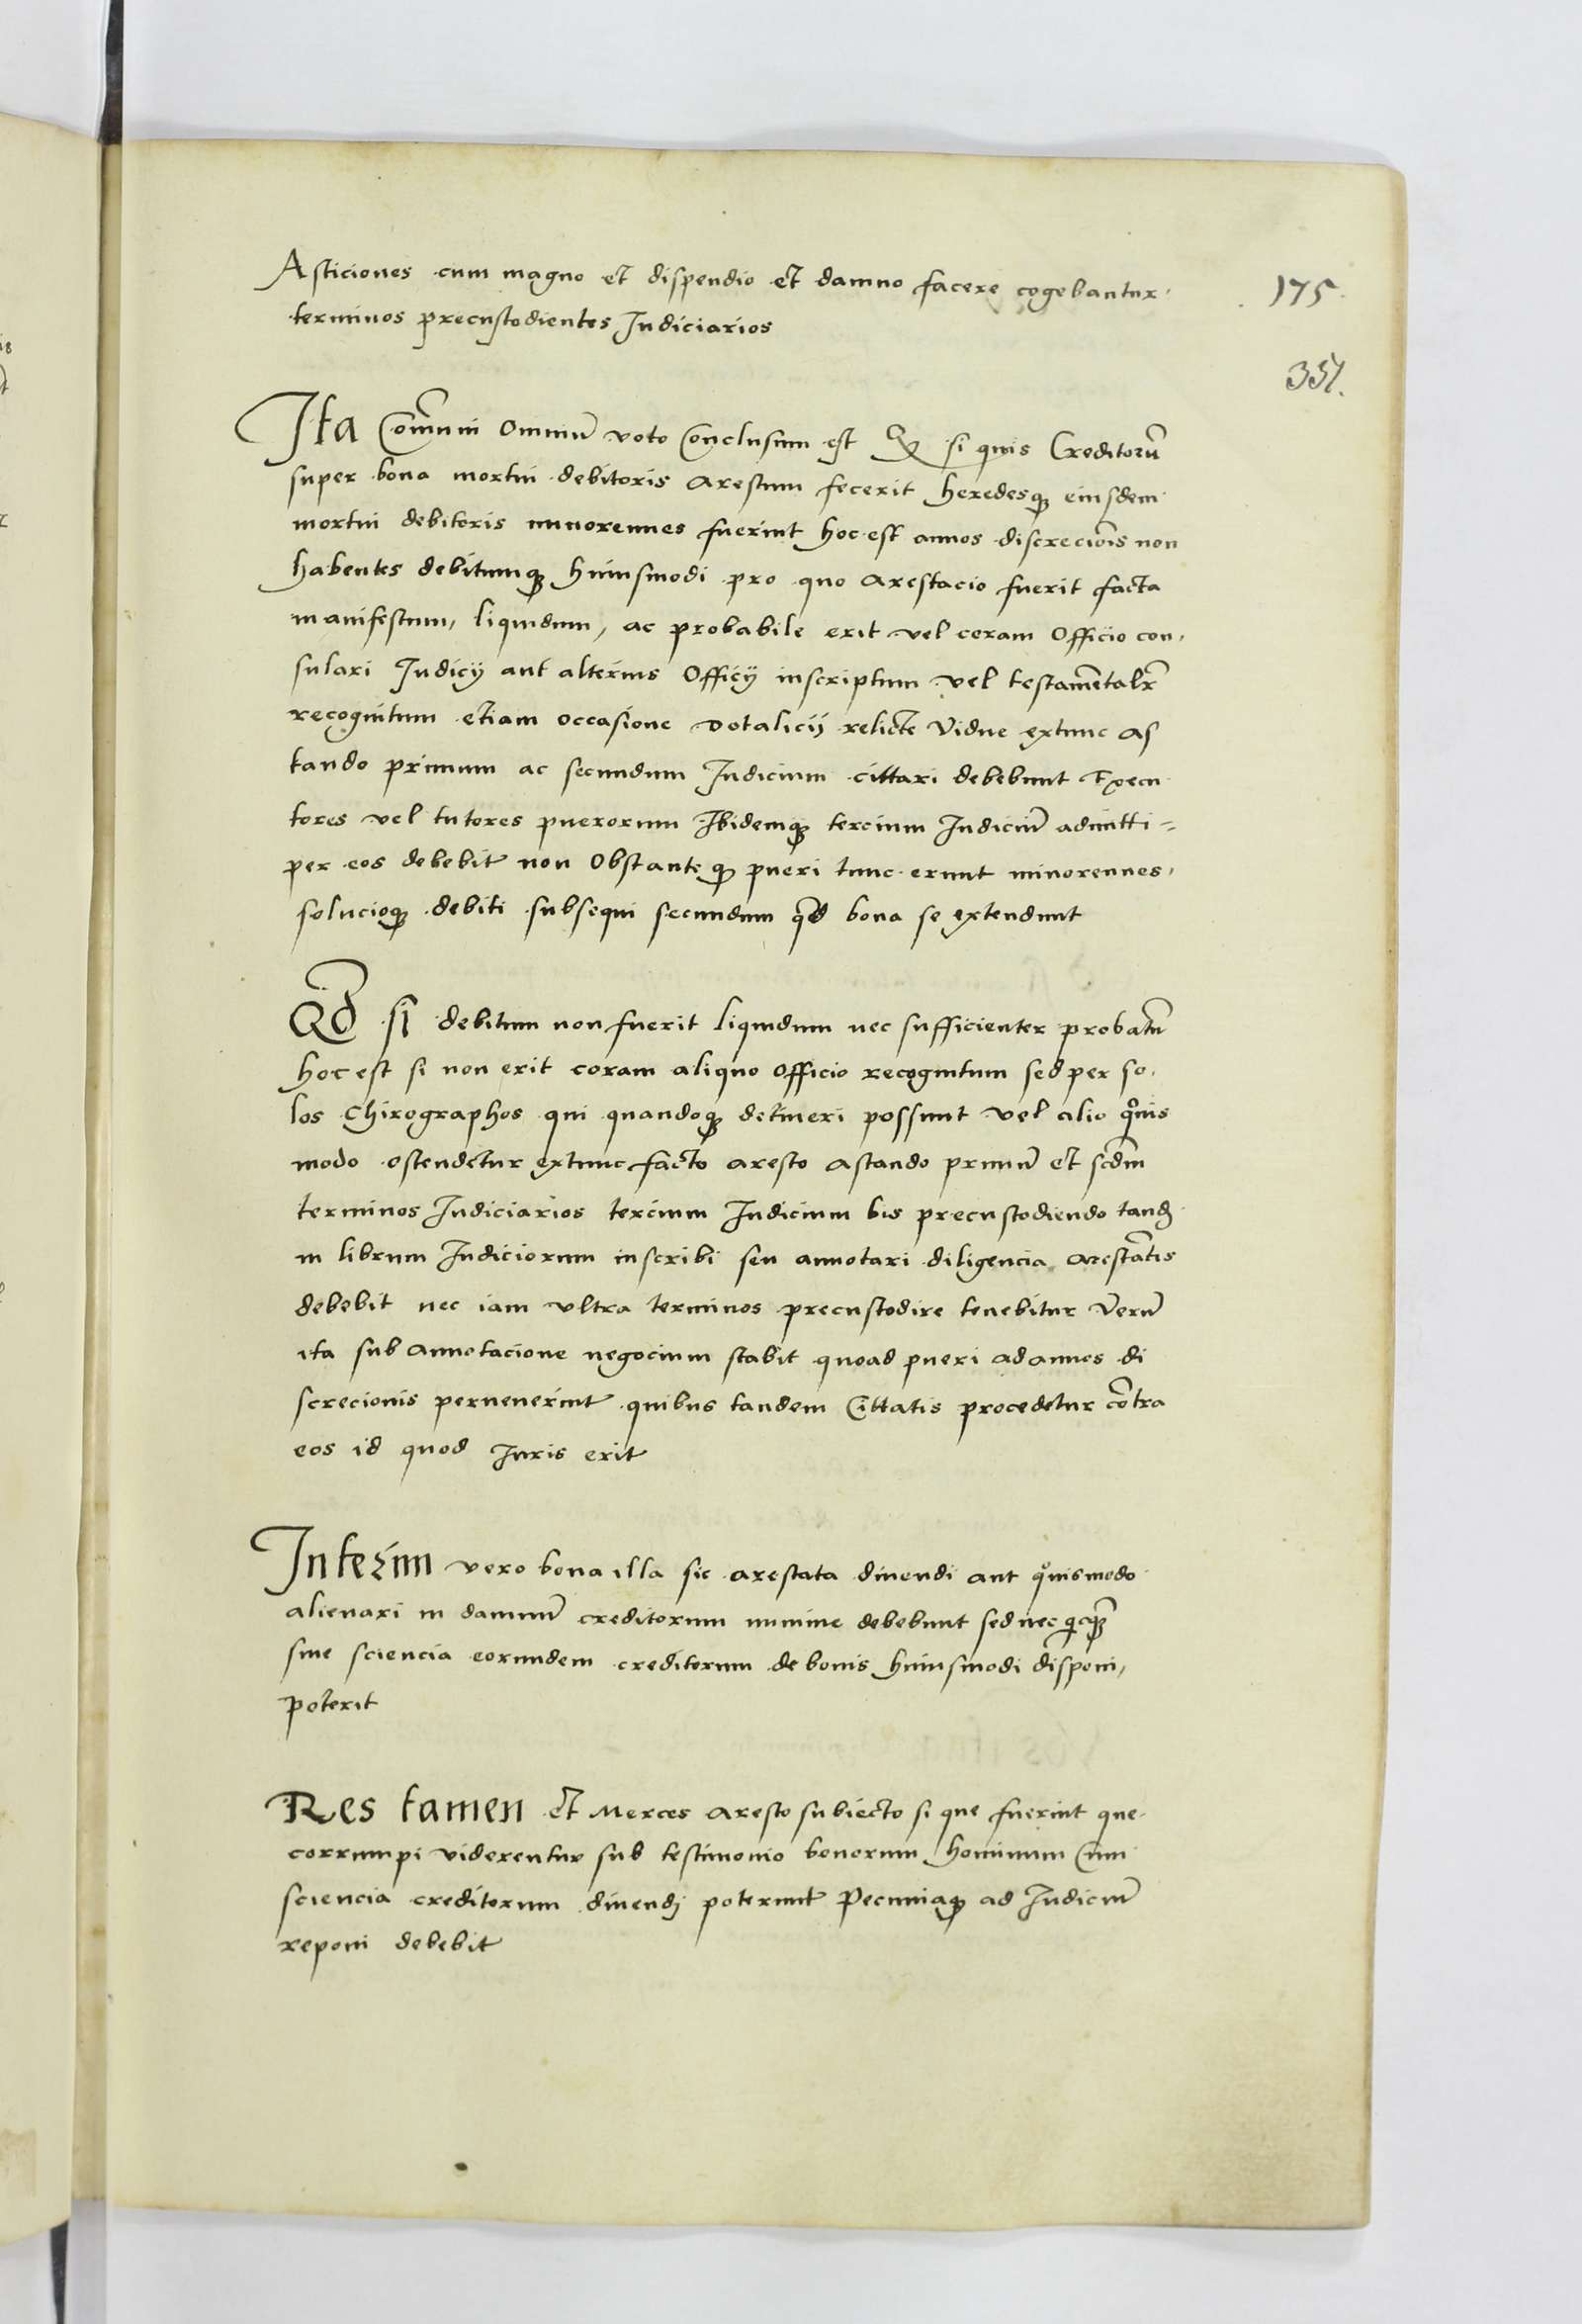 Asticiones cum magno et dispendio et damno facere cogebantur
175
terminos precustodientes Iudiciarios
351.
Ita Com̄uni omniū voto Conclusum est Q̄ si quis Creditorū
super bona mortui debitoris arestum fecerit heredesq; eiusdem
mortui debitoris minorennes fuerint hoc est annos discrecio͞is non
habentes debitumq; huiusmodi pro quo arestacio fuerit facta
manifestum, liquidum, ac probabile erit vel coram Officio con,
sulari Iudicij aut alterius Officij inscriptum vel testam̄entalr̄
recognitum etiam occasione dotalicij relicte Vidue extunc as
tando primum ac secundum Iudicium cittari debebunt Execu
tores vel tutores puerorum Ibidemq; tercium Iudiciū admitti=
per eos debebit non Obstante q; pueri tunc erunt minorennes,
solucioq; debiti subsequi secundum q̄d bona se extendunt
Q̄d si debitum non fuerit liquidum nec sufficienter probatū
hoc est si non erit coram aliquo officio recognitum sed per so,
los Chirographos qui quandoq; detineri possunt vel alio quis
modo ostendetur extunc facto aresto astando primū et sc̄dm
terminos Iudiciarios tercium Iudicium bis precustodiendo tand;
in librum Iudiciorum inscribi seu annotari diligencia arestātis
debebit nec iam vltra terminos precustodire tenebitur Verū
ita sub annotacione negocium stabit quoad pueri ad annos di
screcionis peruenerint quibus tandem Cittatis procedetur cōtra
eos id quod Iuris erit
Interim vero bona illa sic arestata diuendi aut quismodo
alienari in damnū creditorum minime debebunt sed nec
sine sciencia eorundem creditorum de bonis huiusmodi disponi,
poterit
Res tamen et Merces aresto subiecto si que fuerint que
corrumpi viderentur sub testimonio bonorum hominum Cum
sciencia creditorum diuendj poterunt Pecuniaq; ad Iudiciū
reponi debebit